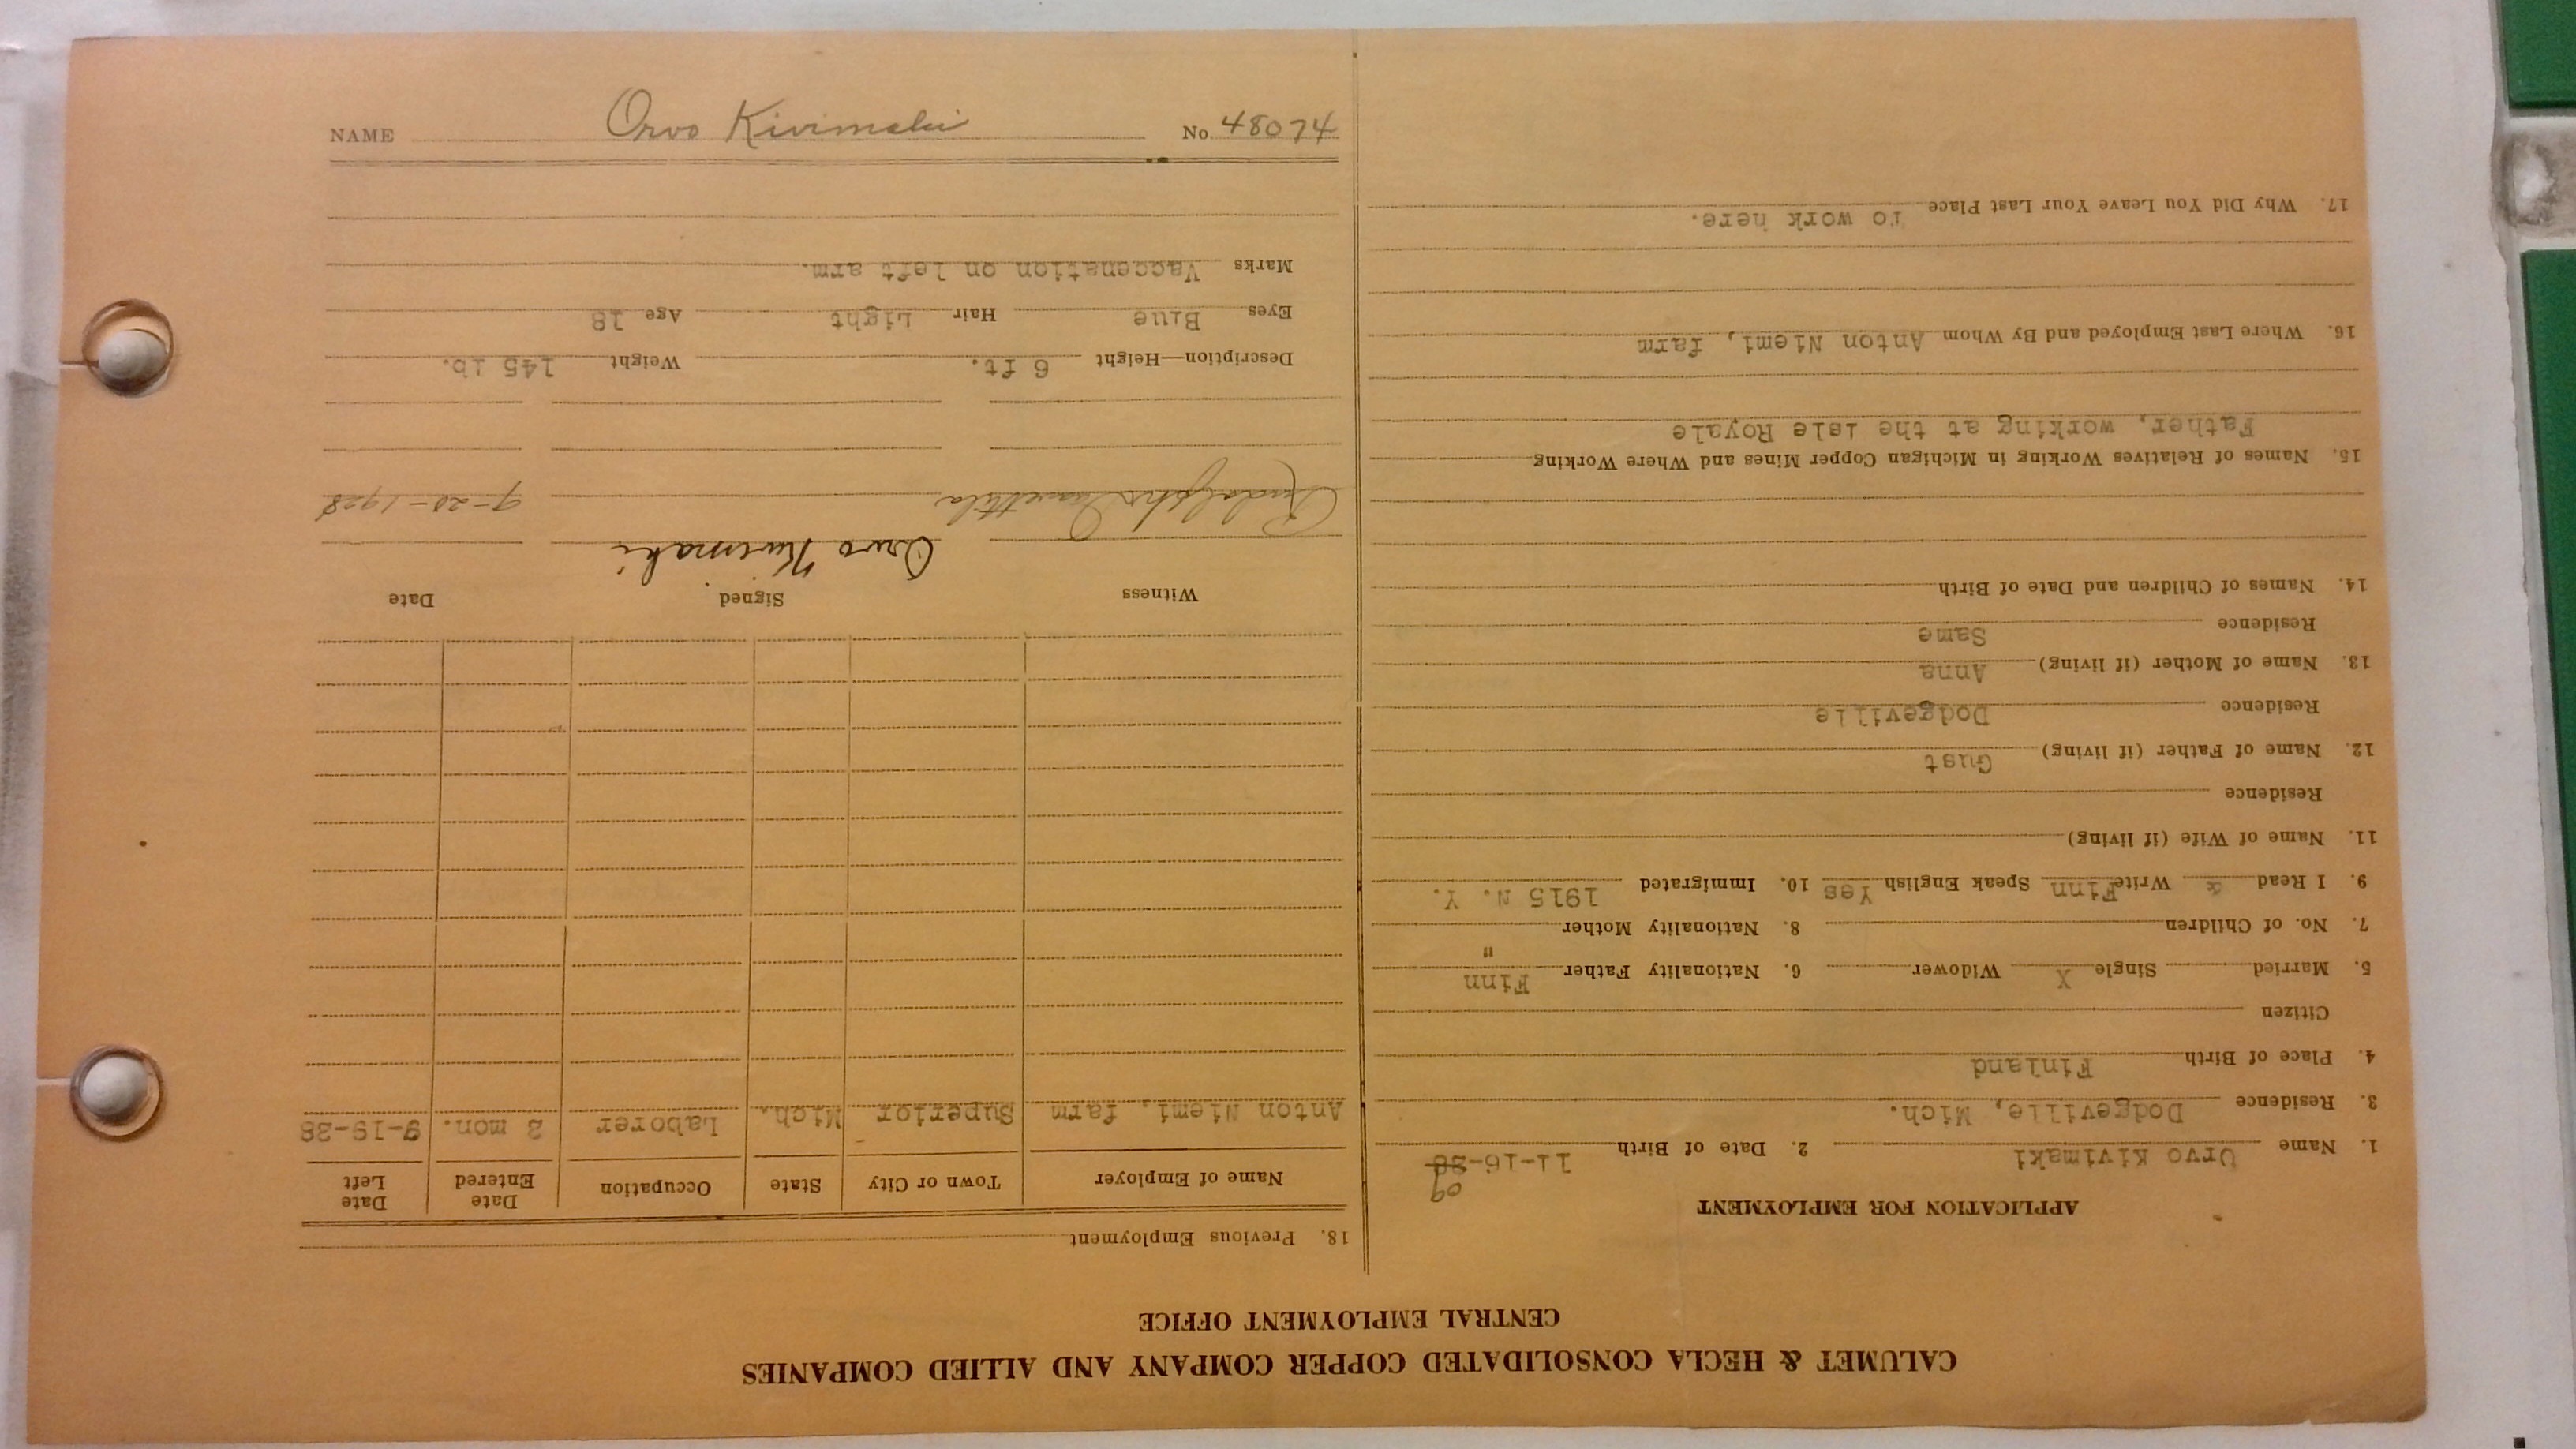 CALUMET & HECLA CONSOLIDATED COPPER COMPANY AND ALLIED COMPANIES
CENTRAL EMPLOYMENT OFFICE
APPLICATION FOR EMPLOYMENT
09
1. Name Orvo Kivimaki 2. Date of Birth 11-16-28
3. Residence Dodgeville, Mich.
4. Place of Birth Finland
Citizen
5. Married Single X Widower 6. Nationality Father Finn
7. No. of Children 8. Nationality Mother "
9. I Read & Write Finn Speak English Yes 10. Immigrated 1915 N. Y.
11. Name of Wife (if living)
Residence
12. Name of Father (if living) Gust
Residence Dodgeville
13. Name of Mother (if living) Anna
Residence Same
14. Names of Children and Date of Birth
15. Names of Relatives Working in Michigan Copper Mines and Where Working
Father, working at the Isle Royale
16. Where Last Employed and By Whom Anton Niemi, farm
17. Why Did You Leave Your Last Place To work here.
18. Previous Employment
Name of Employer Town or City State Occupation Date Entered Date Left
Anton Niemi, farm Superior Mich. Laborer 3 mon. 9-19-28
Witness Signed Date
Orvo Kivimaki
9-20-1928
Description—Height 6 ft. Weight 145 lb.
Eyes Blue Hair Light Age 18
Marks Vaccenation on left arm.
NAME Orvo Kivimaki No. 48074